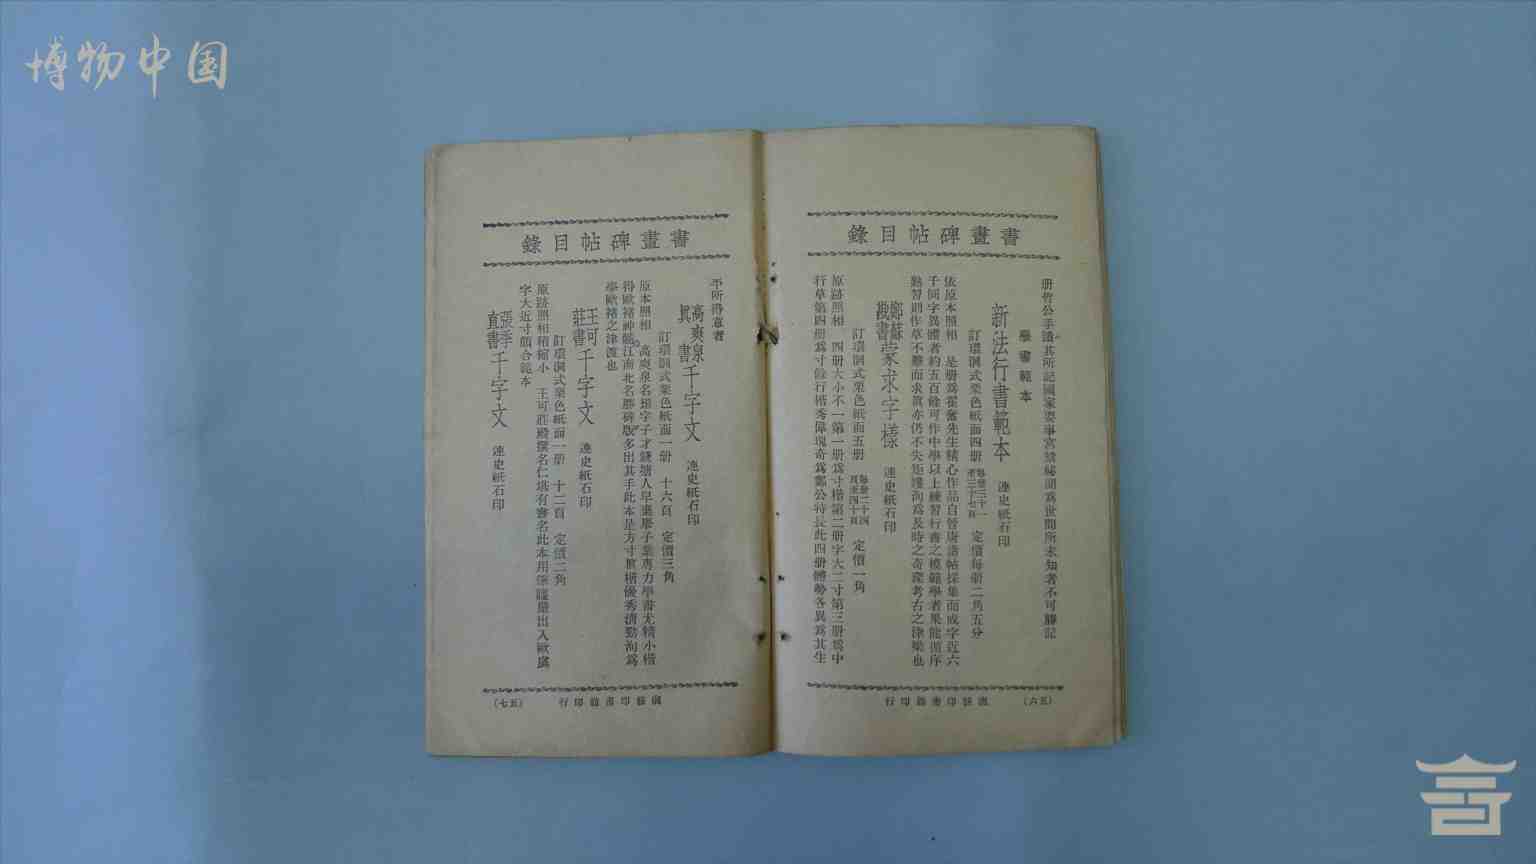 博物中国
書畫碑帖目錄
册皆公手讀其所記國家要事宮禁秘聞爲世間所未知者不可勝記
學書範本
新法行書範本 連史紙石印
訂環洞式栗色紙面四册 每册三十一頁至三十七頁 定價每册二角五分
依原本照相 是册爲翟奮先生精心作品自晉唐諸帖採集而成字近六
千同字異體者約五百餘可作中學以上練習行書之模範學者果能循序
熟習則作草不難而求眞亦仍不失矩矱洵爲及時之奇琛考古之津梁也
鄭蘇戡書蒙求字樣 連史紙石印
訂環洞式栗色紙面五册 每册二十四頁至四十頁 定價一角
原跡照相 四册大小不一第一册爲寸楷第二册字大二寸第三册爲中
行草第四册爲寸餘行楷秀偉瑰奇爲鄭公特長此四册體勢各異爲其生
(五六)
印書館印行
書畫碑帖目錄
平所得意者
高爽泉眞書千字文 連史紙石印
訂環洞式栗色紙面一册 十六頁 定價三角
原本照相 高爽泉名塏字子才錢塘人早棄舉子業專力學書尤精小楷
得歐褚神髓江南北名勝碑版多出其手此本是方寸眞楷優秀清勁洵爲
學歐褚之津渡也
王可莊書千字文 連史紙石印
訂環洞式栗色紙面一册 十二頁 定價二角
原跡照相稍縮小 王可莊殿撰名仁堪有書名此本用筆謹嚴出入歐虞
字大近寸頗合範本
張季直書千字文 連史紙石印
印書館印行
(五七)